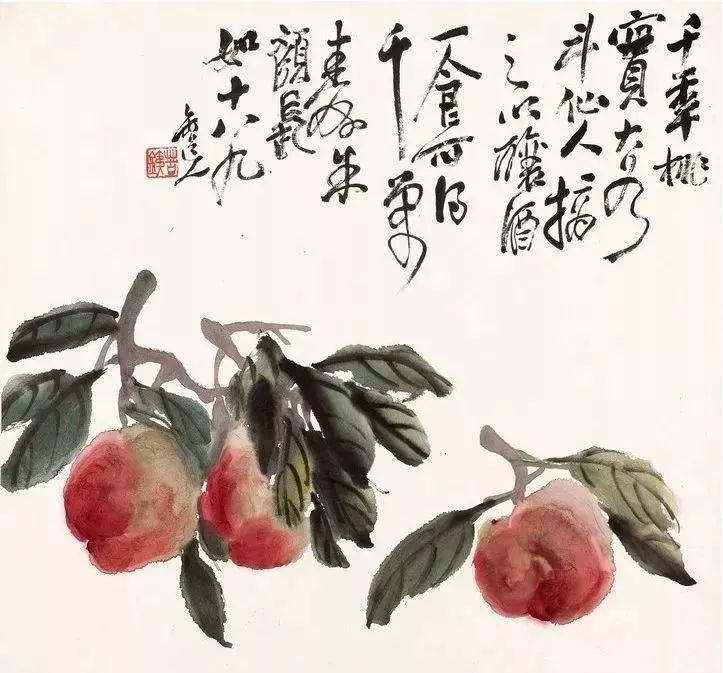 千年桃
實大
斗仙人摘
之以釀酒
一食可得
千萬
壽朱
顏長
如十八九
缶道人
苦鐵